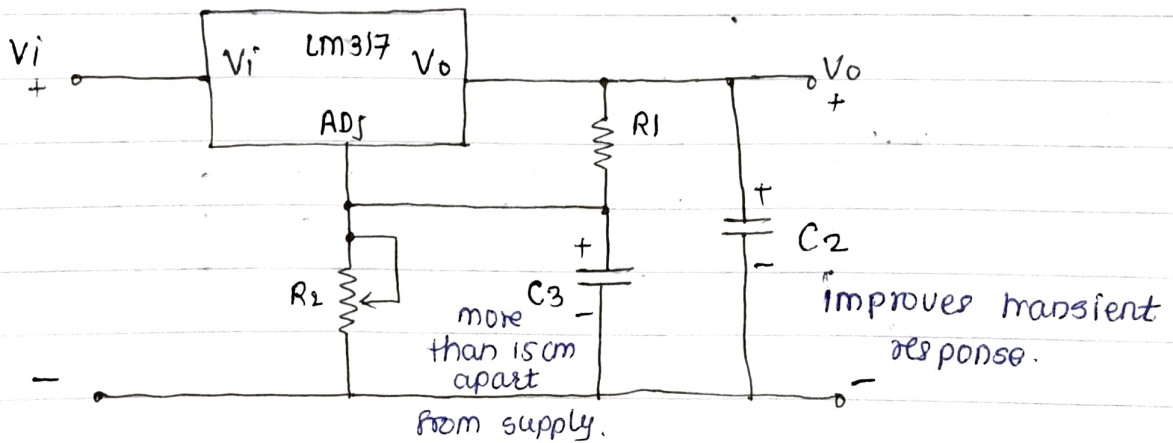 Vi
+
Vi
LM317
Vo
ADJ
Vo
+
R1
+
C2
-
improves transient
response.
R2
+
C3
-
more
than 15cm
apart
from supply.
-
-